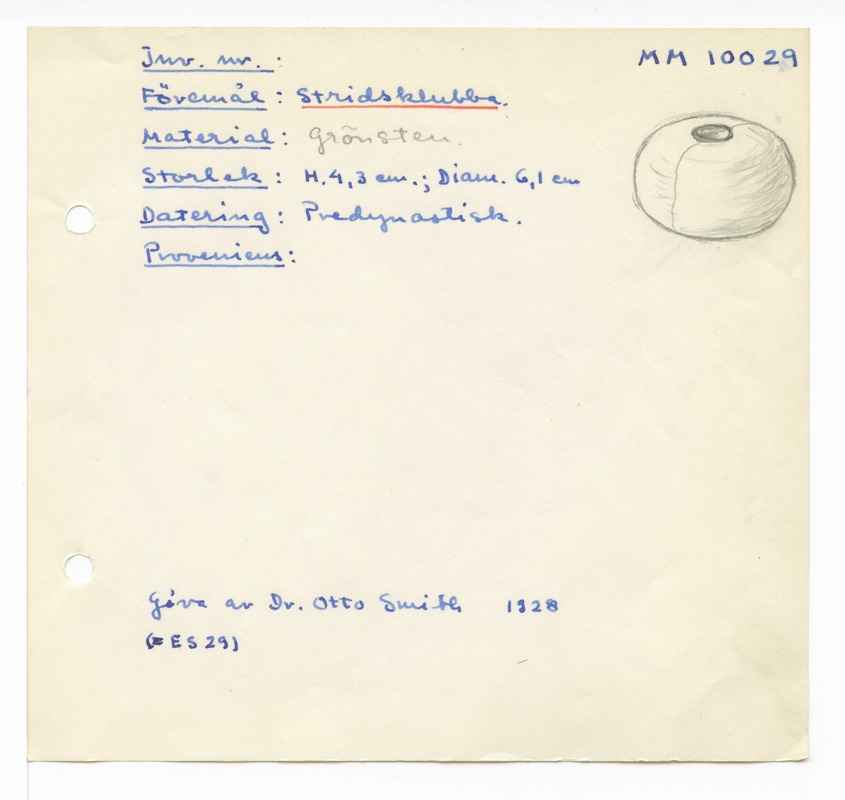 Inv. nr. : MM 10029
Föremål : Stridsklubba.
Material : Grönsten.
Storlek : H. 4,3 cm.; Diam. 6,1 cm
Datering : Predynastisk.
Proveniens :
Gåva av Dr. Otto Smith 1928
(= ES 29)